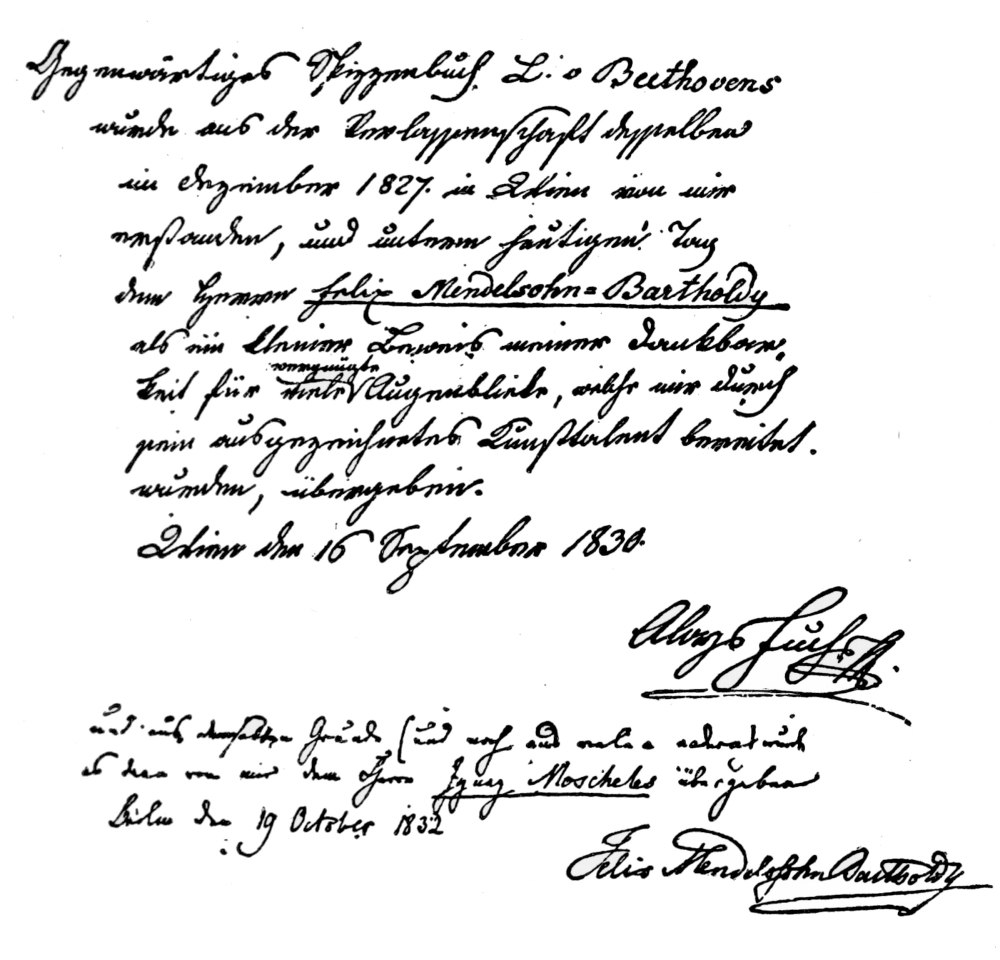 Gegenwärtiges Skizzenbuch L. v Beethovens
wurde aus der Verlassenschaft desselben
im Dezember 1827. in Wien von mir
erstanden, und unterm heutigen Tag
dem Herrn Felix Mendelsohn=Bartholdy
als ein kleiner Beweis meiner Dankbar,
keit für viele vergnügte Augenblicke, welche mir durch
sein ausgezeichnetes Kunsttalent bereitet.
wurden, übergeben.
Wien den 16 September 1830.
Aloys Fuchs
und aus demselben Grunde (und noch aus vielen
es dann von mir dem Herrn Ignaz Moscheles übergeben
Berlin den 19 October 1832
Felix Mendelssohn Bartholdy